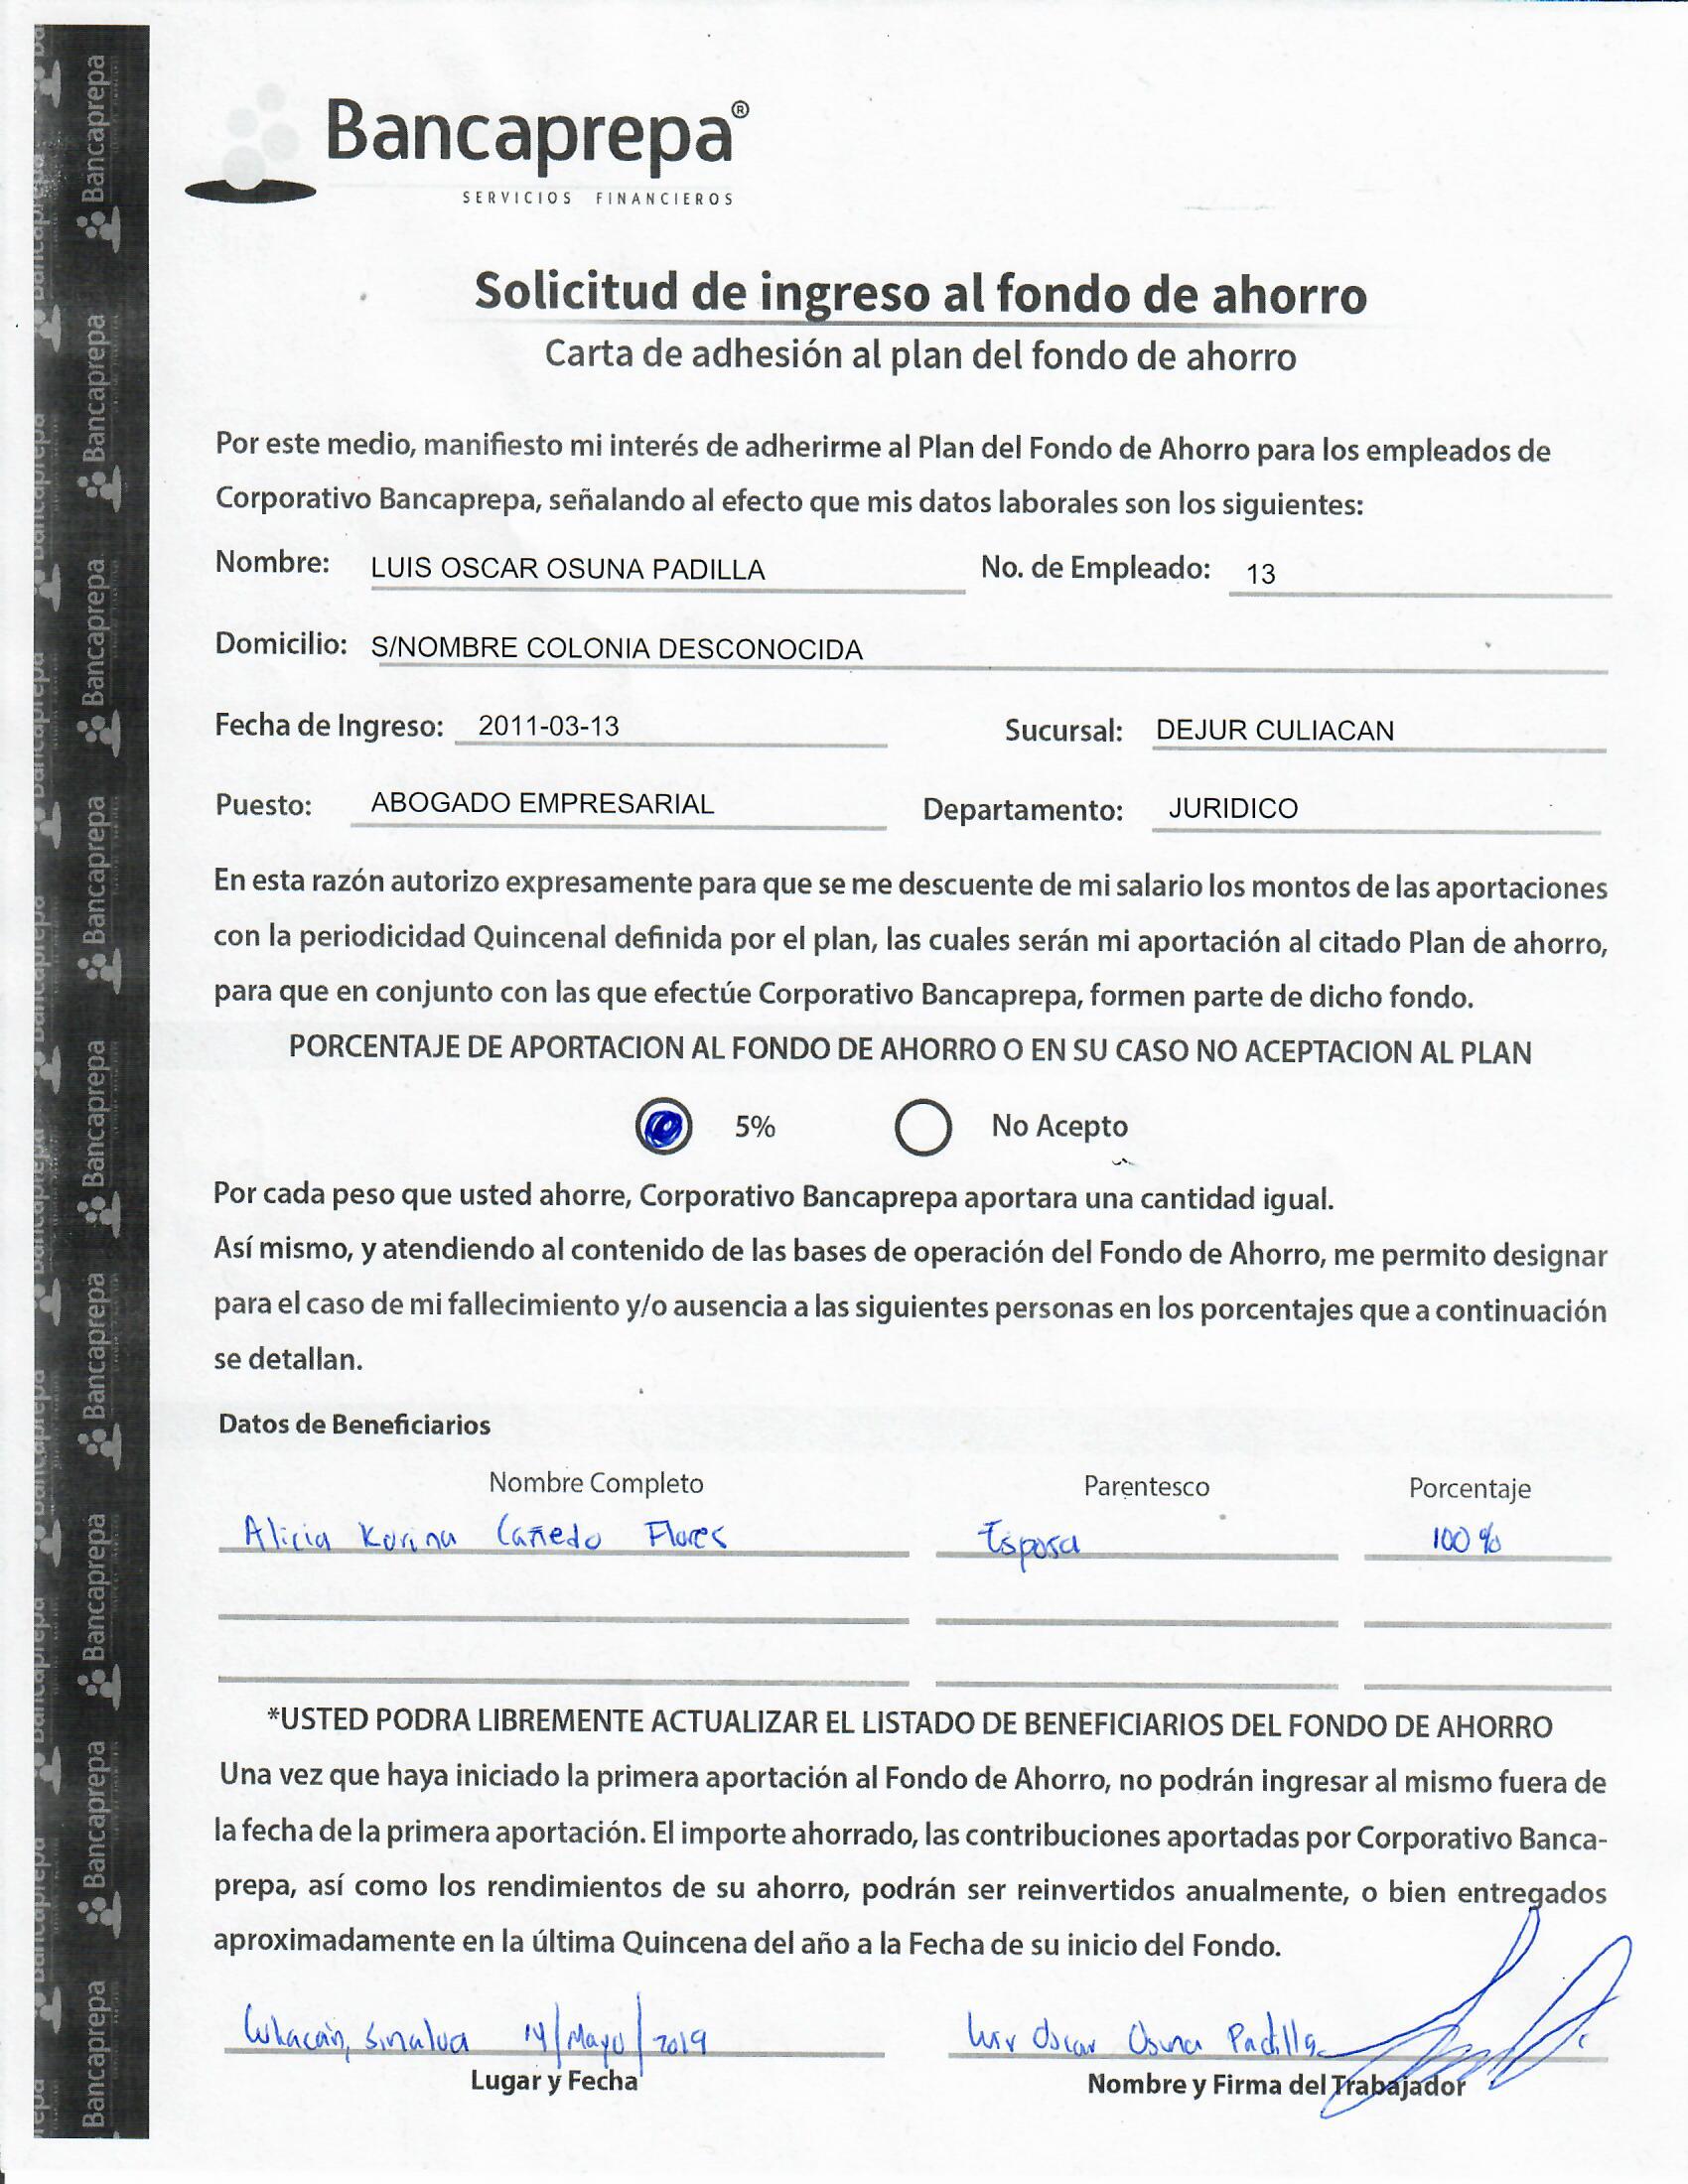 Bancaprepa®
SERVICIOS FINANCIEROS
Solicitud de ingreso al fondo de ahorro
Carta de adhesión al plan del fondo de ahorro
Por este medio, manifiesto mi interés de adherirme al Plan del Fondo de Ahorro para los empleados de
Corporativo Bancaprepa, señalando al efecto que mis datos laborales son los siguientes:
Nombre: LUIS OSCAR OSUNA PADILLA No. de Empleado: 13
Domicilio: S/NOMBRE COLONIA DESCONOCIDA
Fecha de Ingreso: 2011-03-13 Sucursal: DEJUR CULIACAN
Puesto: ABOGADO EMPRESARIAL Departamento: JURIDICO
En esta razón autorizo expresamente para que se me descuente de mi salario los montos de las aportaciones
con la periodicidad Quincenal definida por el plan, las cuales serán mi aportación al citado Plan de ahorro,
para que en conjunto con las que efectúe Corporativo Bancaprepa, formen parte de dicho fondo.
PORCENTAJE DE APORTACION AL FONDO DE AHORRO O EN SU CASO NO ACEPTACION AL PLAN
5% No Acepto
Por cada peso que usted ahorre, Corporativo Bancaprepa aportara una cantidad igual.
Así mismo, y atendiendo al contenido de las bases de operación del Fondo de Ahorro, me permito designar
para el caso de mi fallecimiento y/o ausencia a las siguientes personas en los porcentajes que a continuación
se detallan.
Datos de Beneficiarios
Nombre Completo Parentesco Porcentaje
Alicia Karina Cañedo Flores Esposa 100%
*USTED PODRA LIBREMENTE ACTUALIZAR EL LISTADO DE BENEFICIARIOS DEL FONDO DE AHORRO
Una vez que haya iniciado la primera aportación al Fondo de Ahorro, no podrán ingresar al mismo fuera de
la fecha de la primera aportación. El importe ahorrado, las contribuciones aportadas por Corporativo Banca-
prepa, así como los rendimientos de su ahorro, podrán ser reinvertidos anualmente, o bien entregados
aproximadamente en la última Quincena del año a la Fecha de su inicio del Fondo.
Culiacán, Sinaloa 14/Mayo/2019 Luis Oscar Osuna Padilla
Lugar y Fecha Nombre y Firma del Trabajador
Bancaprepa
Bancaprepa
Bancaprepa
Bancaprepa
Bancaprepa
Bancaprepa
Bancaprepa
Bancaprepa
Bancaprepa